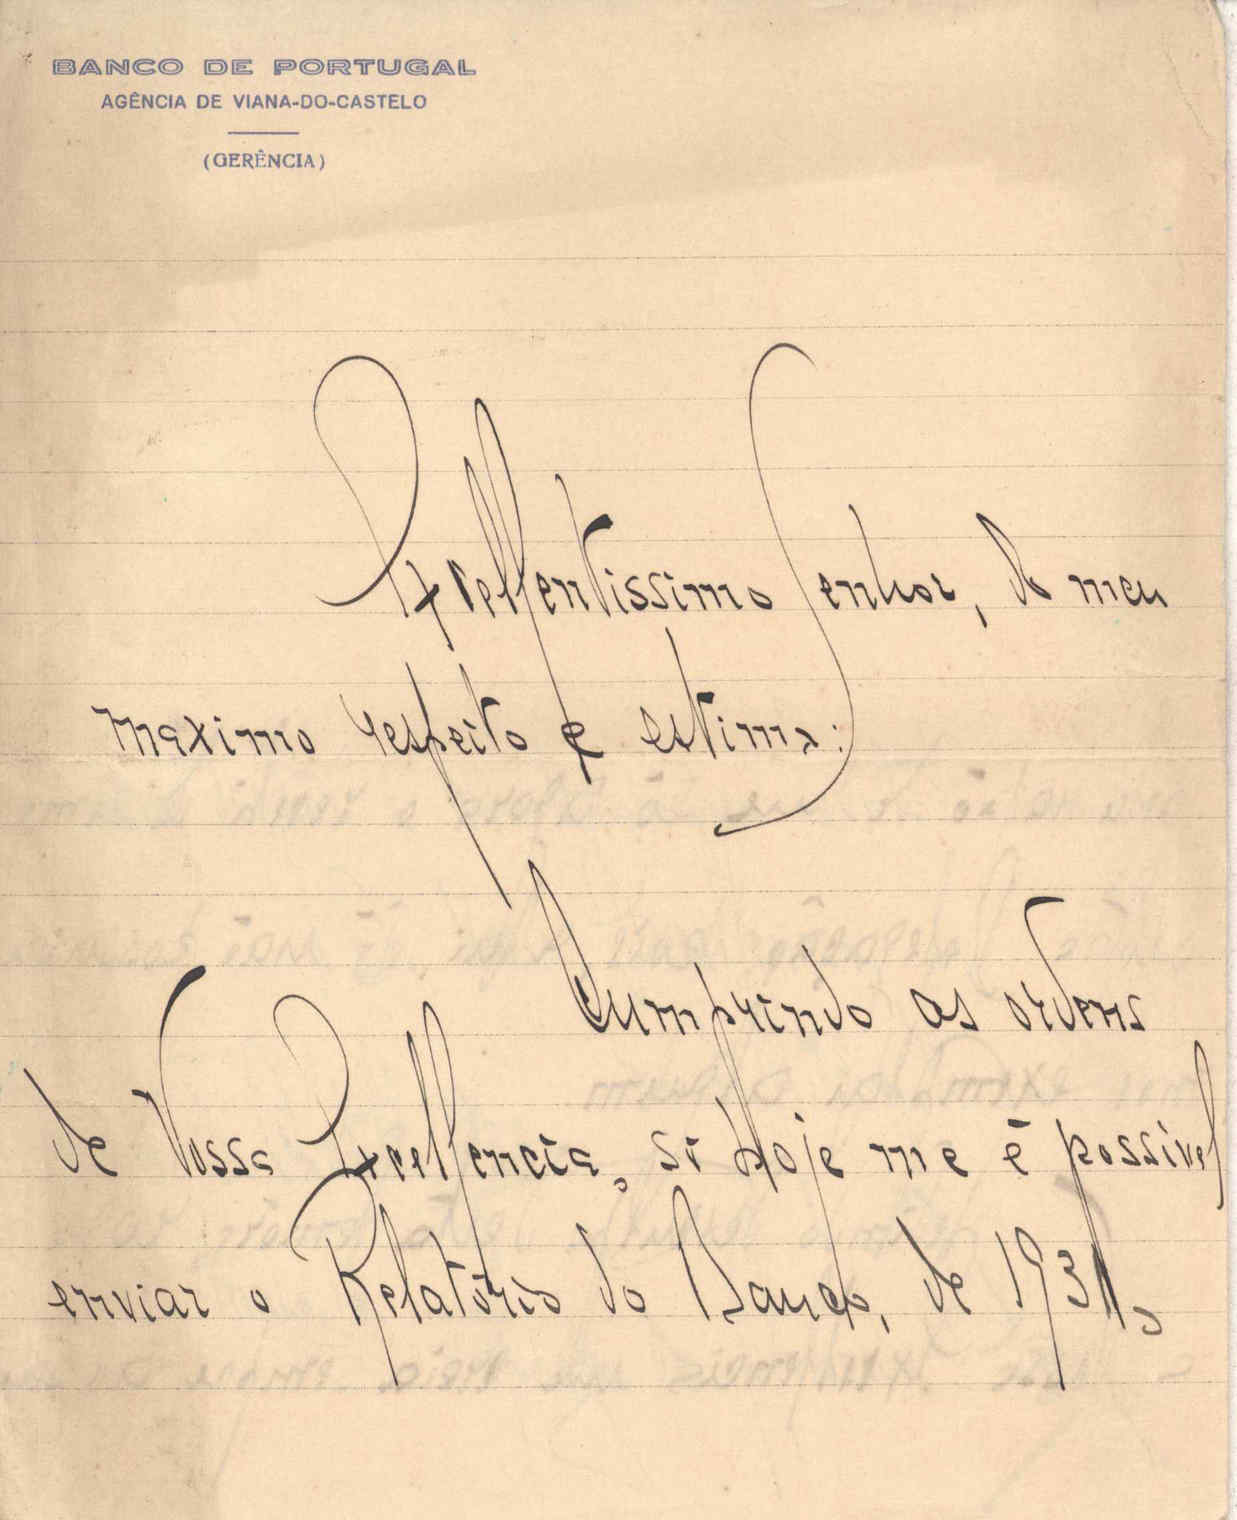 BANCO DE PORTUGAL
AGÊNCIA DE VIANA-DO-CASTELO
(GERÊNCIA)
Excellentissimo Senhor, do meu
maximo respeito e estima:
Cumprindo as ordens
de Vossa Excellencia, só hoje me é possível
enviar o Relatório do Banco, de 1931,